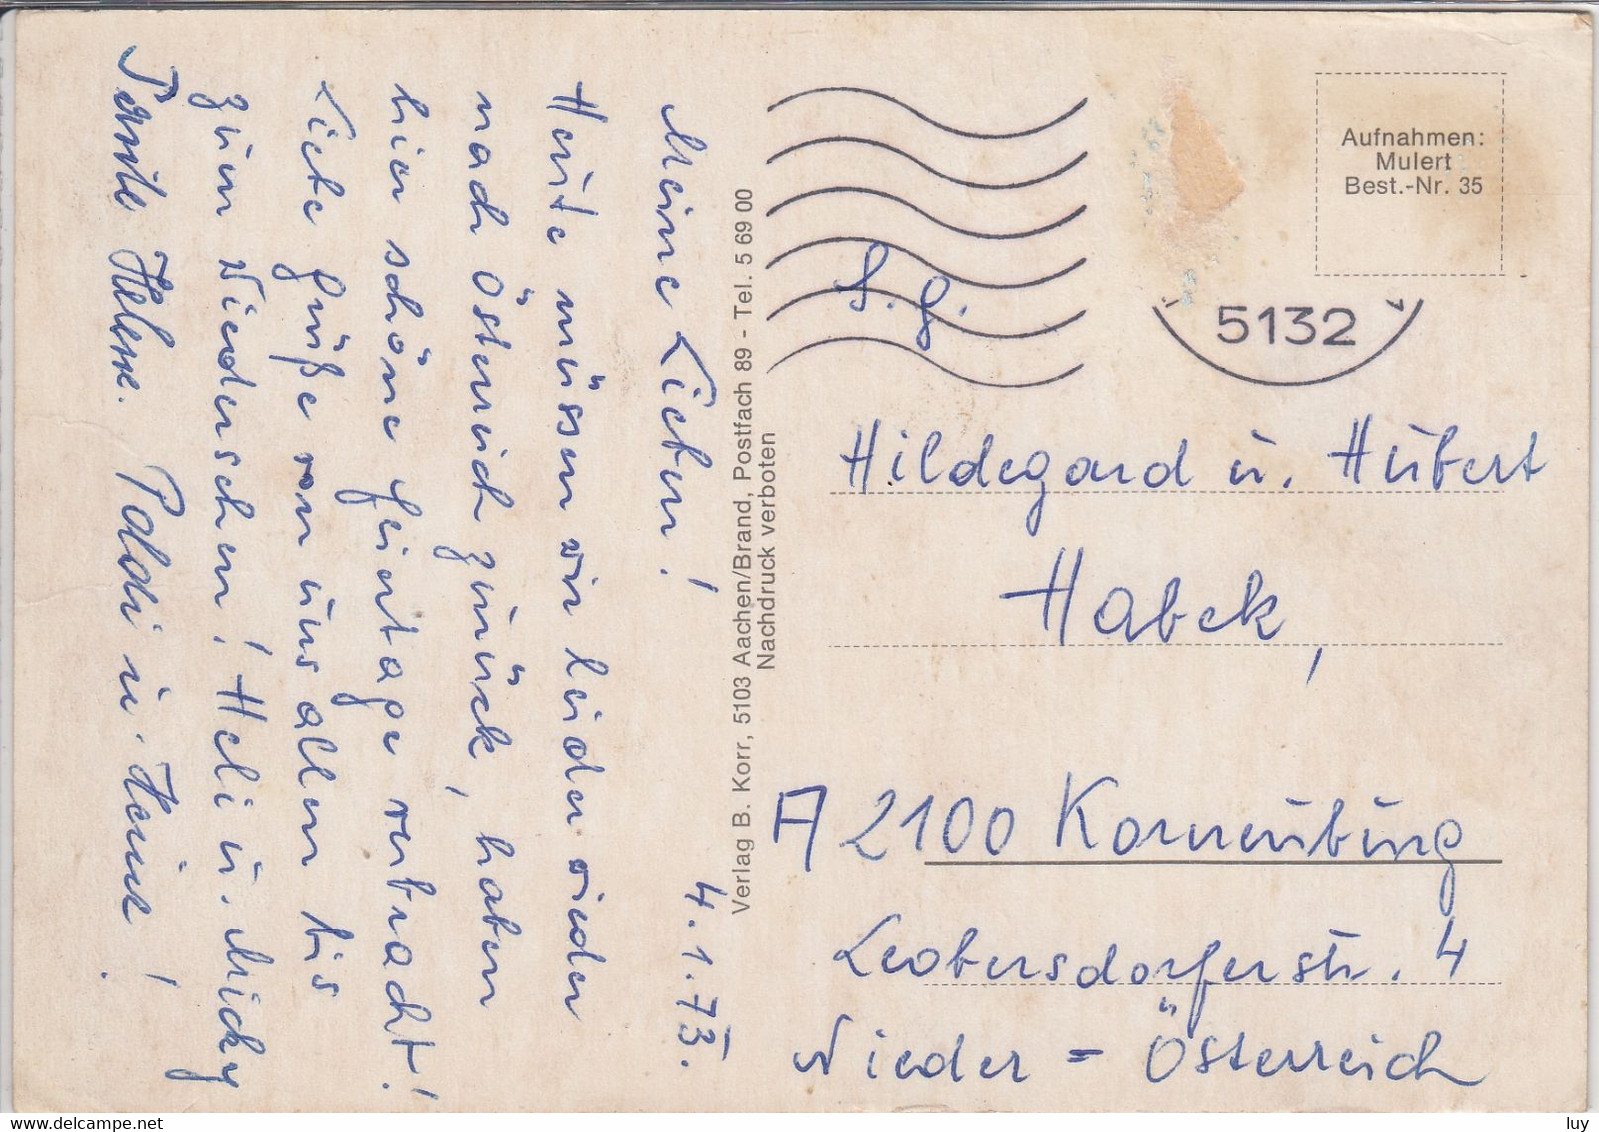 4.1.73.
Meine Lieben!
Heute müssen wir leider wieder
nach Österreich zurück, haben
hier schöne Feiertage verbracht!
Liebe Grüße von uns allen bis
zum Wiedersehen! Heli u. Micky
Tante Helene. Poldi u. Heini!
Verlag B. Korr, 5103 Aachen/Brand, Postfach 89 - Tel. 5 69 00
Nachdruck verboten
Aufnahmen:
Mulert
Best.-Nr. 35
5132
Hildegard u. Hubert
Habek,
A 2100 Korneuburg
Leobersdorferstr. 4
Nieder = Österreich
hippostcard.com
luy